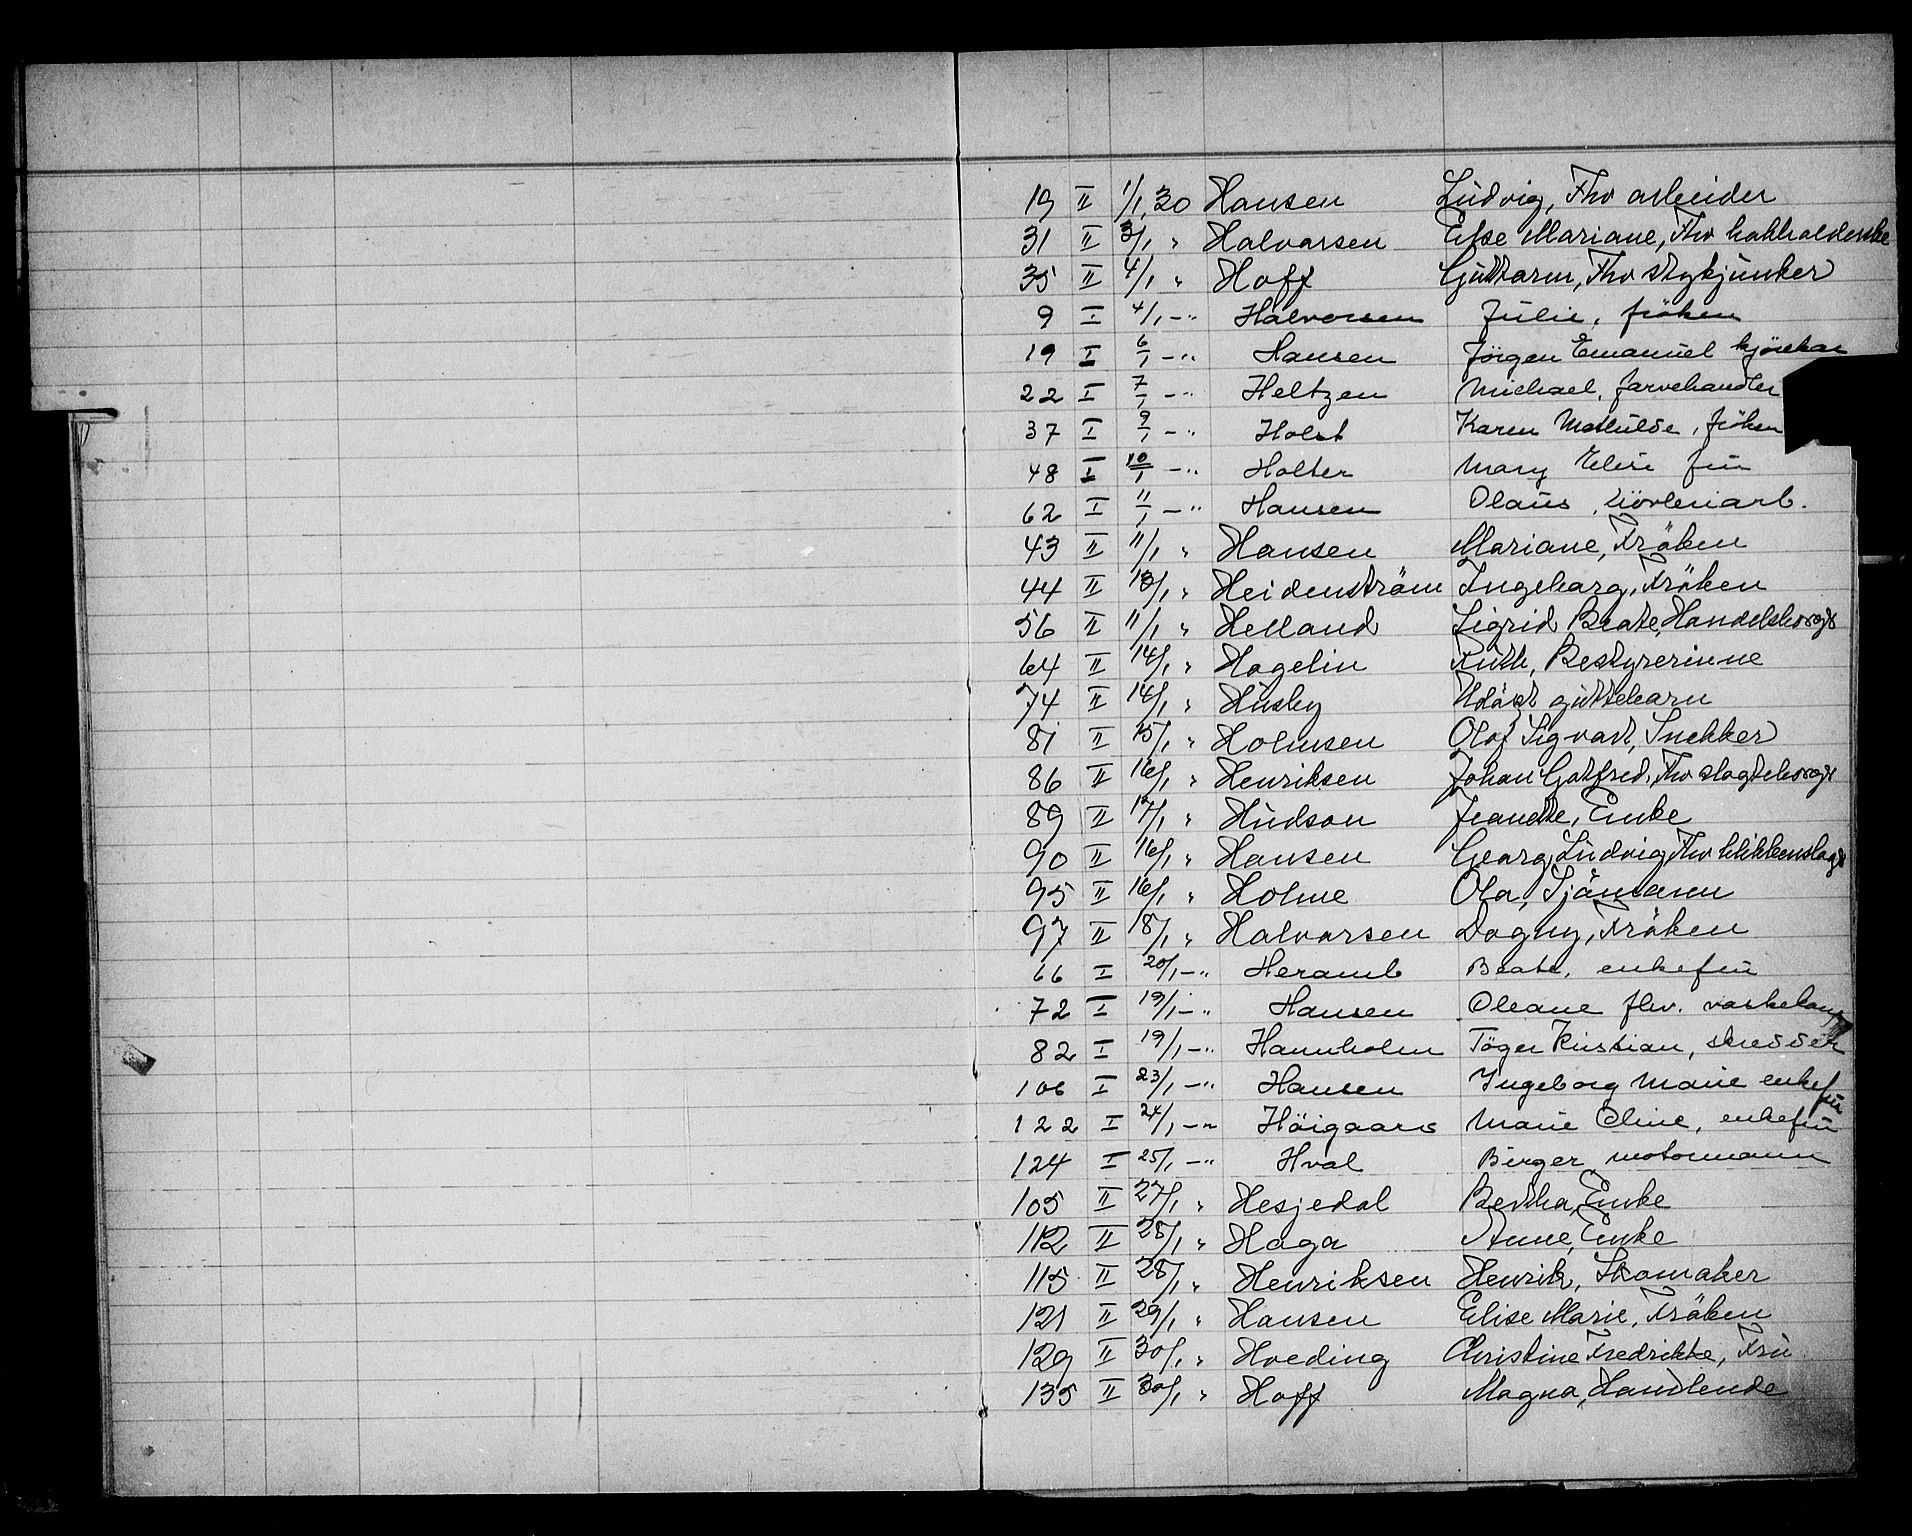 19 II 1/1 30 Hansen Ludvig, Fhv arbeider
31 II 3/1 " Halvorsen Else Mariane, Fhv
35 II 4/1 " Hoff Guttorm, Fhv stykjunker
9 I 4/1 -" Halvorsen Julie, frøken
19 I 6/1 -" Hansen Jörgen Emanuel
22 I 7/1 -" Heltzen Michael, farvehandler
37 I 9/1 -" Holst Karen Mathilde, fröken
48 I 10/1 -" Holter Mary Elise fru
62 I 11/1 -" Hansen Olaus,
43 II 11/1 " Hansen Mariane, Fröken
44 II 13/1 " Heidenström Ingeborg, Fröken
56 II 11/1 " Helland Sigrid Beate, Handelsborgst
64 II 14/1 " Hagelin Ruth, Bestyrerinne
74 II 14/1 " Husby Udöpt guttebarn
81 II 15/1 " Holmsen Olof Sigvart, Snekker
86 II 16/1 " Henriksen Johan Gotfred, Fhv slagteborgst
89 II 17/1 " Hudson Jeanette, Enke
90 II 16/1 " Hansen Georg Ludvig, Fhv blikkenslagr
95 II 16/1 " Holme Ola, Sjömann
97 II 18/1 " Halvorsen Dagny, Fröken
66 I 20/1 -" Heramb Beate, enkefru
72 I 19/1 -" Hansen Oleane fhv.
82 I 19/1 -" Hannholm Töger Kristian, skredder
106 I 23/1 -" Hansen Ingeborg Marie enkefru
122 I 24/1 -" Höigaard Marie Oline, enkefru
124 I 25/1 -" Hval Birger, motormann
105 II 27/1 " Hesjedal Bertha, Enke
112 II 28/1 " Haga Anne, Enke
115 II 28/1 " Henriksen Henrik, Skomaker
121 II 29/1 " Hansen Elise Marie, Fröken
129 II 30/1 " Hveding Christine Fredrikke, Fru
135 II 30/1 " Hoff Magna, Handlende